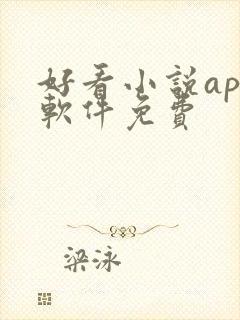 好看小説ap
軟件免費
梁泳